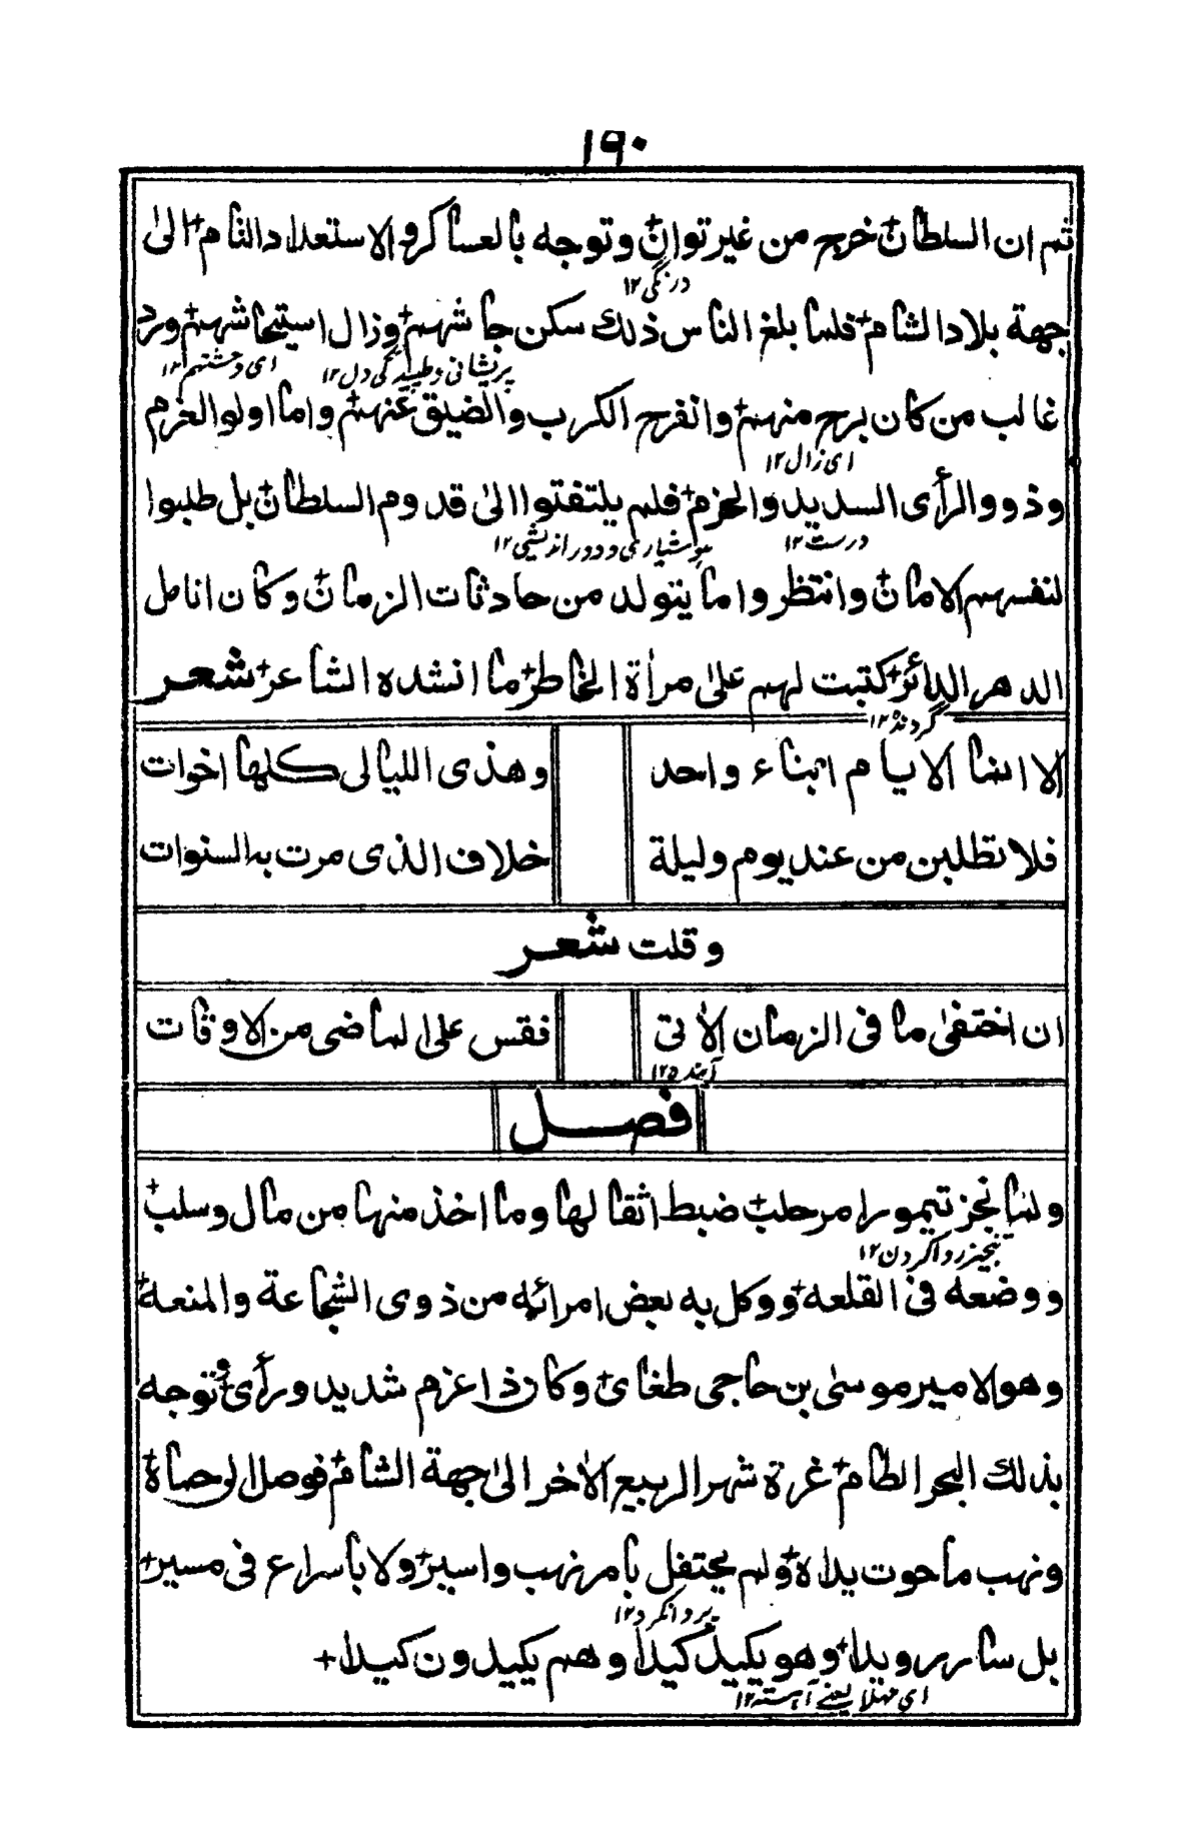 ١٩٠
ثم ان السلطان خرج من غير توان وتوجه بالعساكر والاستعداد التام الى
درنگی ١٢
جهة بلاد الشام فلما بلغ الناس ذلك سكن جاشهم وزال استيحاشهم ورد
پریشانی وطپیدگی دل ١٢ ای وحشتهم ١٢
غالب من كان برح منهم وانفرج الكرب والضيق عنهم واما اولو العزم
ای زال ١٢
وذوو الرأى السديد والحزم فلم يلتفتوا الى قدوم السلطان بل طلبوا
درست ١٢ هوشیاری ودور اندیشی ١٢
لنفسهم الامان وانتظروا ما يتولد من حادثات الزمان وكان انامل
الدهر الدائر كتبت لهم على مرأة الخاطر ما انشده الشاعر شعر
گردنده ١٢
الا انما الايام ابناء واحد وهذى الليالى كلها اخوات
فلا تطلبن من عند يوم وليلة خلاف الذى مرت به السنوات
وقلت شعر
ان اختفى ما فى الزمان الأتى فقس على الماضى من الاوقات
آینده ١٢
فصل
ولما نجز تيمور امر حلب ضبط اثقالها وما اخذ منها من مال وسلب
تنجیز روا کردن ١٢
ووضعه فى القلعه ووكل به بعض امرائه من ذوى الشجاعة والمنعه
وهو الامير موسى بن حاجى طغاى وكان ذا عزم شديد ورأى وتوجه
بذلك البحر الطام غرة شهر الربيع الأخر الى جهة الشام فوصل الى حماة
ونهب ما حوت يداه ولم يحتفل بامر نهب واسير ولا باسراع فى مسير
پروا نکرد ١٢
بل سار رويدا وهو يكيد كيدا وهم يكيدون كيدا
ای مهلا یعنے آهسته ١٢